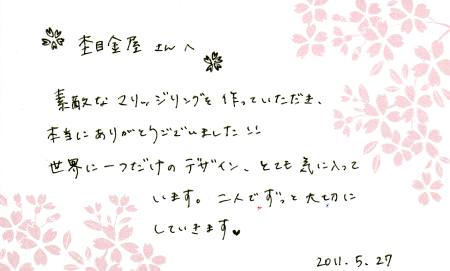 杢目金屋 さんへ
素敵な マリッジリングを 作っていただき、
本当にありがとうございました!!
世界に一つだけの デザイン、とても 気に入って
います。二人で ずっと 大切に
していきます♥
2011.5.27